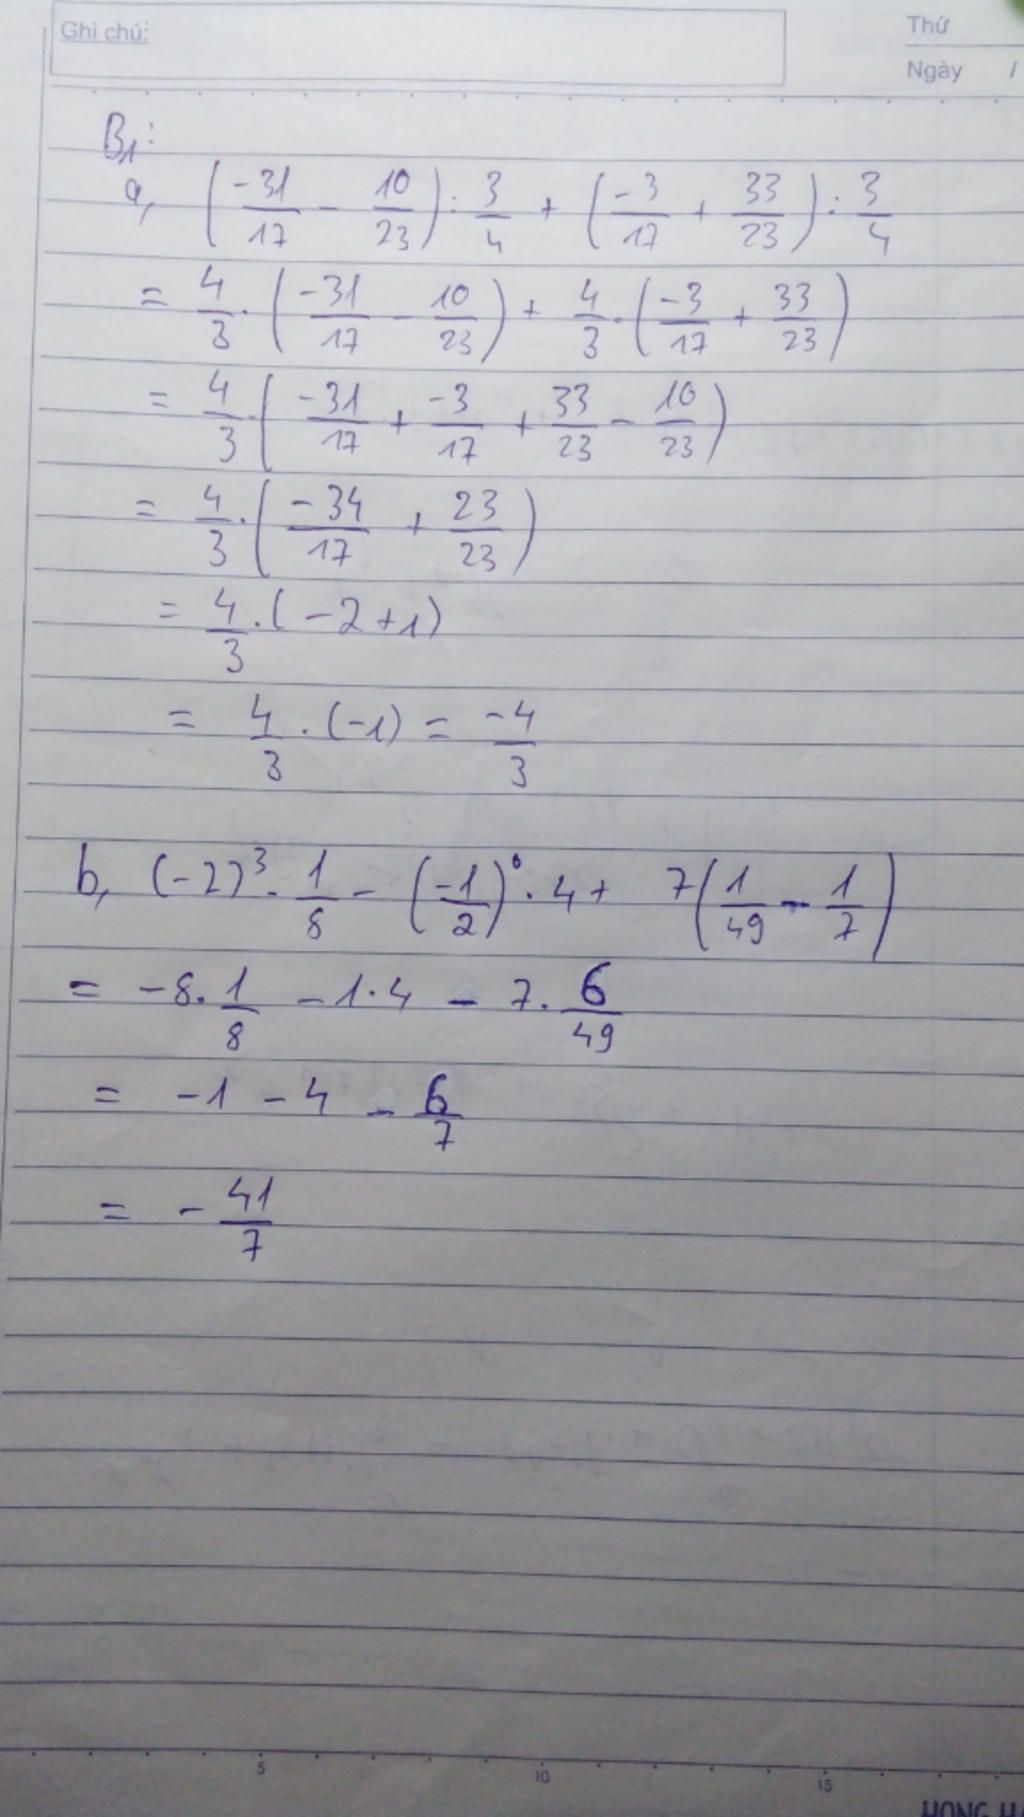 Ghi chú:
Thứ
Ngày /
B1:
a, (-31/17 - 10/23) : 3/4 + (-3/17 + 33/23) : 3/4
= 4/3 . (-31/17 - 10/23) + 4/3 . (-3/17 + 33/23)
= 4/3 . (-31/17 + -3/17 + 33/23 - 10/23)
= 4/3 . (-34/17 + 23/23)
= 4/3 . (-2 + 1)
= 4/3 . (-1) = -4/3
b, (-2)³ . 1/8 - (-1/2)⁰ . 4 + 7(1/49 - 1/7)
= -8 . 1/8 - 1 . 4 - 7 . 6/49
= -1 - 4 - 6/7
= - 41/7
5 10 15